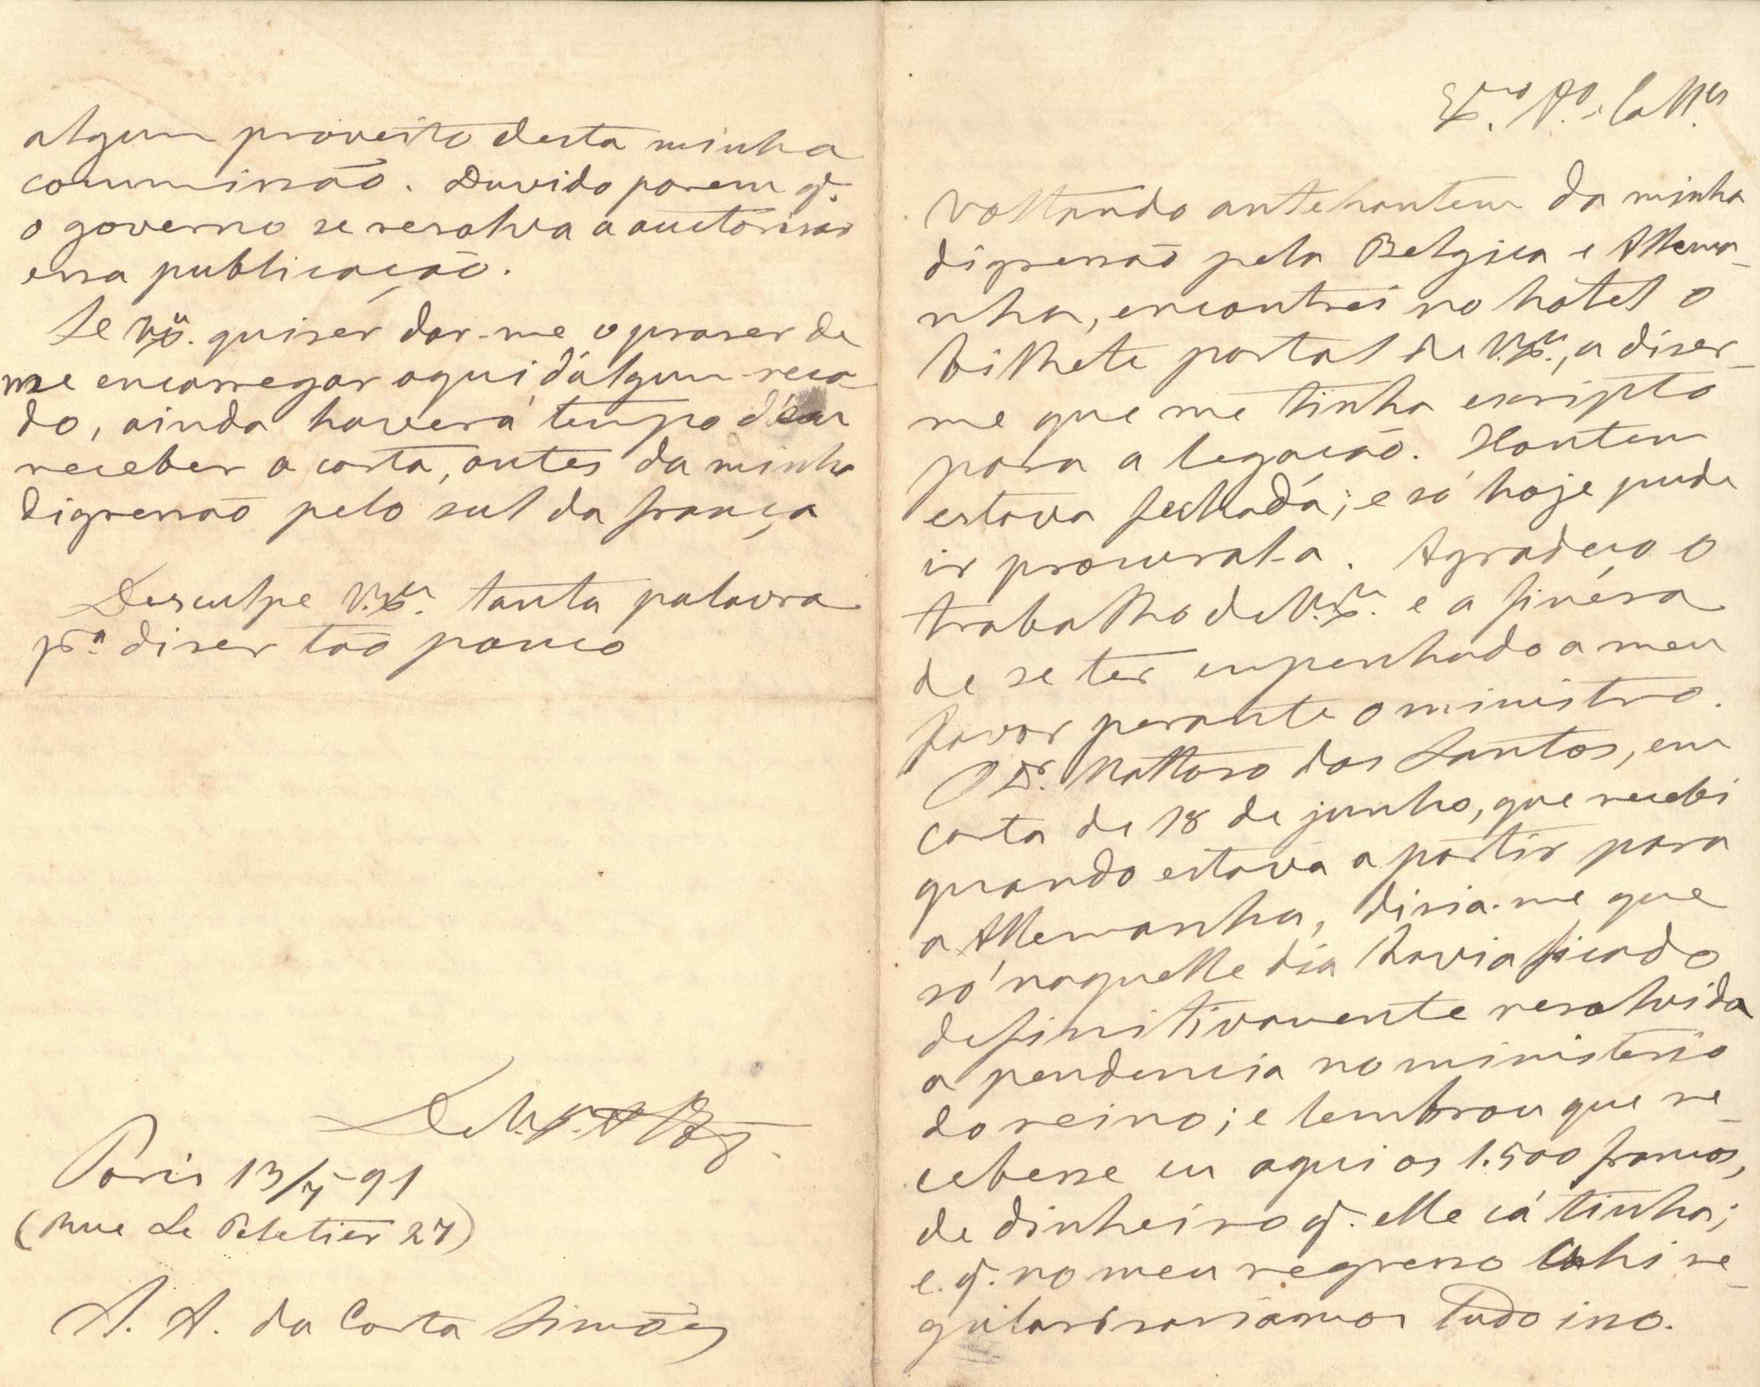 Ex.mo Am.o e Coll.ga
Voltando antehontem da minha
digressão pela Belgica e Allema-
nha, encontrei no hotel o
bilhete postal de V. Ex.ª, a diser-
me que me tinha escripto
para a legação. Hontem
estava fechada; e só hoje pude
ir procural-a. Agradeço o
trabalho de V. Ex.ª e a finésa
de se ter empenhado a meu
favor perante o ministro.
O Dr. Mattoso dos Santos, em
carta de 18 de junho, que recebi
quando estava a partir para
a Allemanha, disia-me que
só naquelle dia havia ficado
definitivamente resolvida
a pendencia no ministerio
do reino; e lembrou que re-
cebesse eu aqui os 1.500 francos,
de dinheiro q. elle cá tinha;
e q. no meu regresso ahi re-
gularisariamos tudo isso.
algum proveito desta minha
commissão. Duvido porem q.
o governo se resolva a auctorisar
essa publicação.
Se V. Ex.ª quiser dar-me o praser de
me encarregar aqui d'algum reca-
do, ainda haverá tempo d'eu
receber a carta, antes da minha
digressão pelo sul da frança
Desculpe V. Ex.ª tanta palavra
p.ª diser tão pouco
De V. Ex.ª
Paris 13/7-91
(Rue Le Peletier 27)
A. A. da Costa Simões